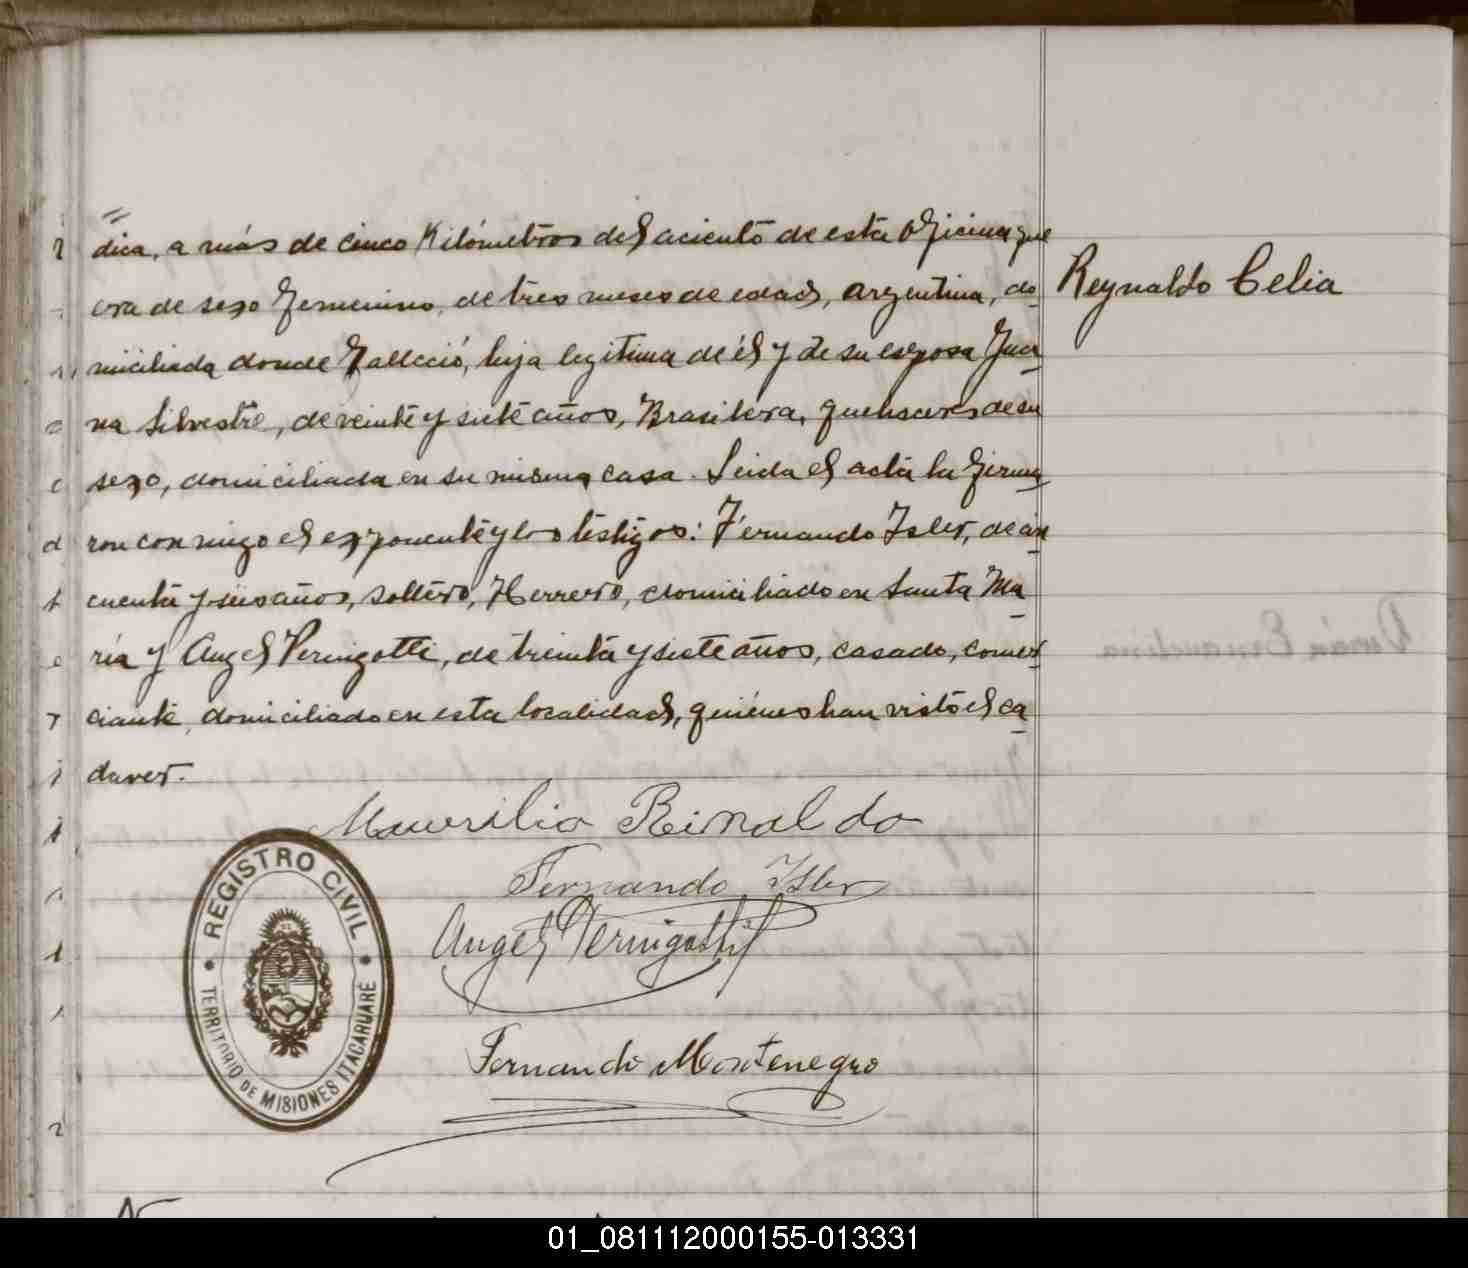 dica, a más de cinco Kilómetros del aciento de esta Oficina que
era de sexo femenino, de tres meses de edad, argentina, do
miciliada donde falleció, hija legitima de él y de su esposa Jua
na Silvestre, de veinte y siete años, Brasilera, quehaceres de su
sexo, domiciliada en su misma casa. Leida el acta la firma
ron con migo el exponente y los testigos: Fernando Isler, de cin
cuenta y seis años, soltero, Herrero, domiciliado en Santa Ma
ría y Angel Peringotti, de treinta y siete años, casado, comer
ciante, domiciliado en esta localidad, quiénes han visto el ca
daver.
Reynaldo Celia
Maurilio Reinaldo
Fernando Isler
Angel Peringotti
Fernando Montenegro
REGISTRO CIVIL
TERRITORIO DE MISIONES ITACARUARÉ
01_081112000155-013331